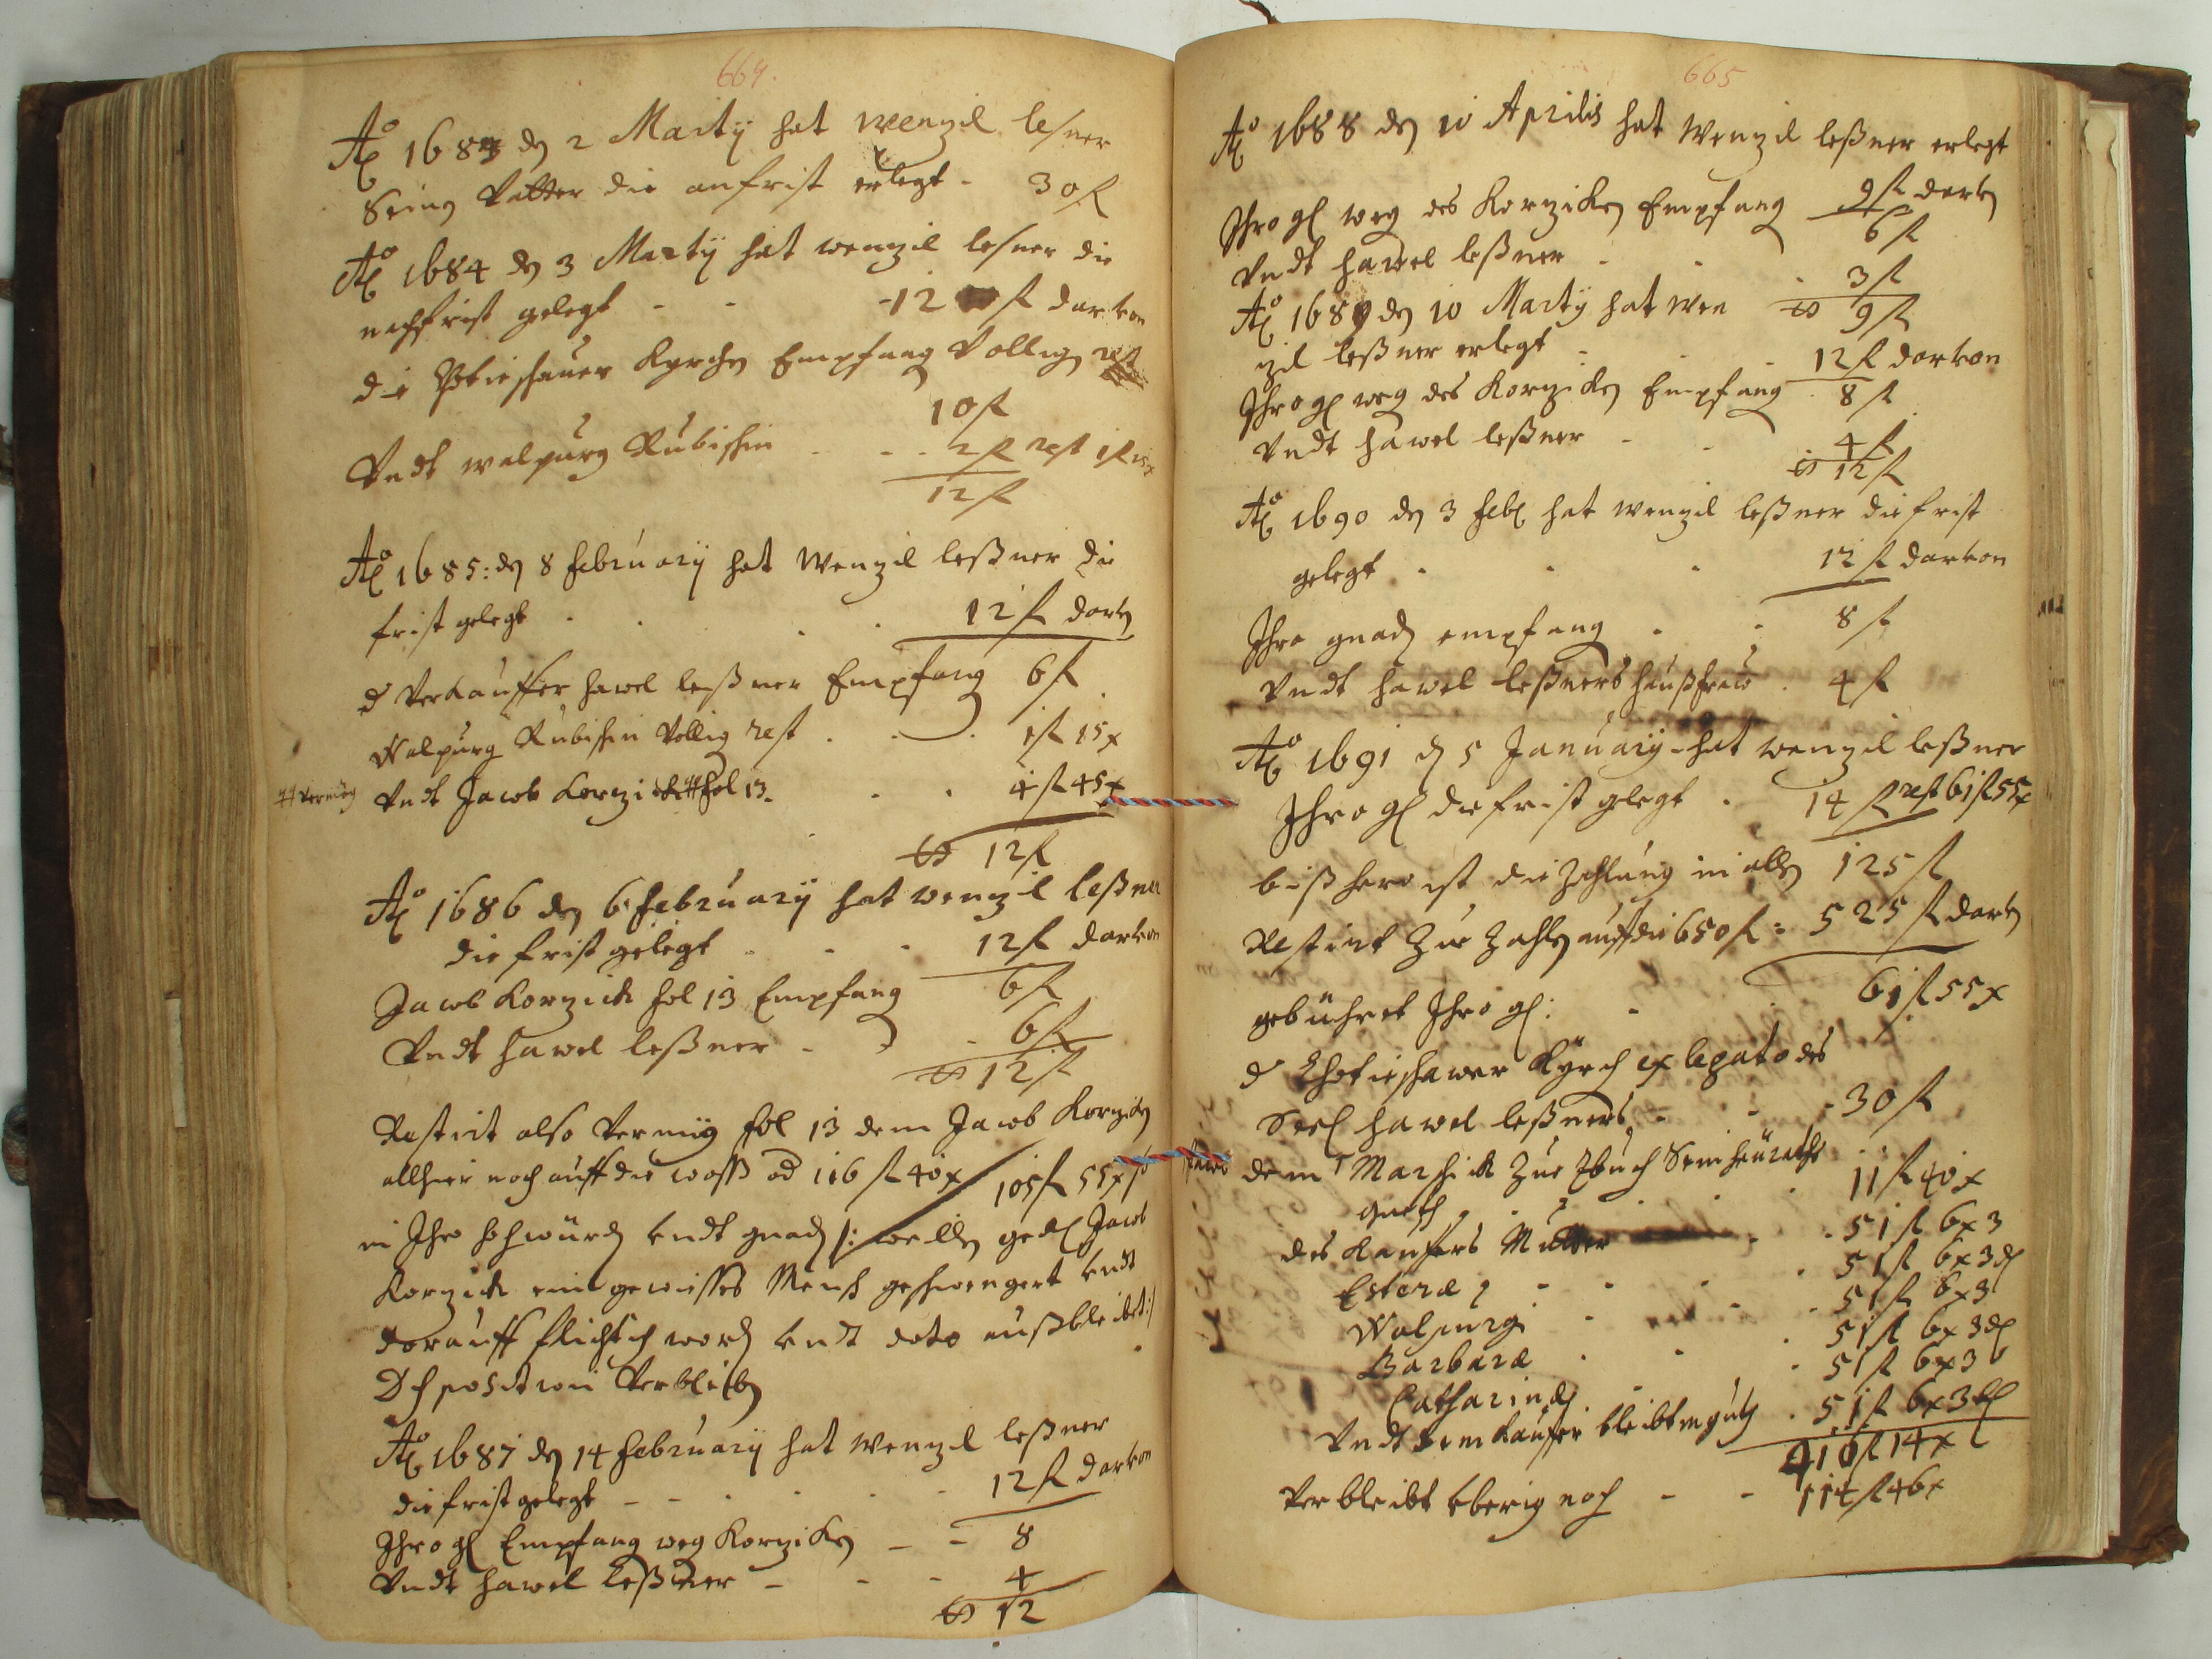 664.
Ao 1683 den 2 Martÿ hat Wenzel leßner
Seinen Vatter die anfrist erlegt - 30 fl
Ao 1684 den 3 Martÿ hat wenzel leßner die
nachfrist gelegt - - 12 fl darvon
die Kyrchen Empfang Vollig rest
10 fl
Vndt walpurg Rubischin - - 2 fl rest 1 fl 15x
12 fl
Ao 1685: den 8 February hat Wenzel leßner die
frist gelegt . . . . 12 fl darvon
d Verkauffer hawel leßner Empfang 6 fl
Walpurg Rubischin Vollig rest . . . 1 fl 15x
Vermög
Vndt Jacob Korzick fol 13. . . 4 fl 45x
12 fl
Ao 1686 den 6 February hat wenzel leßner
die frist gelegt . . . 12 fl darvon
Jacob Korzick fol 13 Empfang 6 fl
Vndt hawel leßner - - 6 fl
12 fl
Restirt also Vermög fol 13 dem Jacob Korzicken
allhier noch auff die 116 fl 40x 105 fl 55x so
in Ihro hochwürden vndt gnaden /: weillen gedl Jacob
Korzick ein gewisses Mensch geschwengert vndt
darauff flichtich worden vndt dato außbleibet :/
Disposition Verbleiben
Ao 1687 den 14 February hat wenzel leßner
die frist gelegt - - . . . 12 fl darvon
Ihro gl Empfang weg Korzicken - - 8
Vndt hawel leßner - - - 4
12
665
Ao 1688 den 10 Aprilis hat Wenzel leßner erlegt
9 fl darvon
Ihro gl weg des Korzicken Empfang 6 fl
Vndt hawel leßner . . . 3 fl
9 fl
Ao 1689 den 10 Martÿ hat Wen
zel leßner erlegt . . . 12 fl darvon
Ihro gl weg des Korzicken Empfang 8 fl
Vndt hawel leßner - - 4 fl
12 fl
Ao 1690 den 3 Febl hat wenzel leßner die frist
gelegt . . . 12 fl darvon
Ihro gnaden empfang . . 8 fl
Vndt hawel leßners haußfraw . 4 fl
Ao 1691 d 5 January hat wenzel leßner
Ihro gl die frist gelegt . 14 fl rest 61 fl 55x
bißhero ist die Zahlung in allen 125 fl
Restirt Zue Zahlen auff die 650 fl : 525 fl darvon
gebühret Ihro gl: . . 61 fl 55x
d Kÿrch ex legato des
Seel hawel leßners . . . 30 fl
dem Marschick Zue Sein heürathß
gueth . . . . 11 fl 40x
des Kaufers Mutter . . 51 fl 6x 3
Esterae . . . 51 fl 6x 3 dl
Walpurgi . . . 51 fl 6x 3
Barbarae . . . 51 fl 6x 3 dl
Catharinae . . 51 fl 6x 3
Vndt dem Kaufer bleibt . 51 fl 6x 3 dl
410 fl 14x
Verbleibt vberig noch - - 114 fl 46x